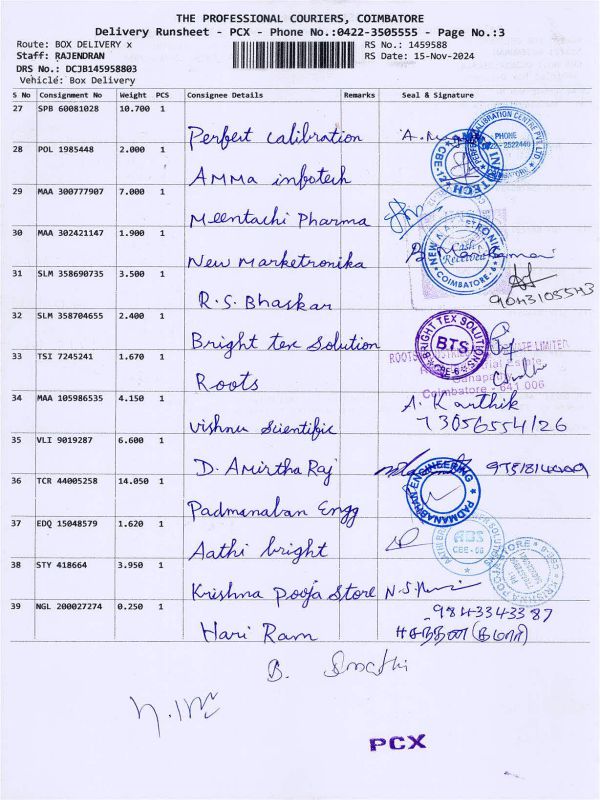 THE PROFESSIONAL COURIERS, COIMBATORE
Delivery Runsheet - PCX - Phone No.:0422-3505555 - Page No.:3
Route: BOX DELIVERY x RS No.: 1459588
Staff: RAJENDRAN RS Date: 15-Nov-2024
DRS No.: DCJB145958803
Vehicle: Box Delivery
S No Consignment No Weight PCS Consignee Details Remarks Seal & Signature
27 SPB 60081028 10.700 1 Perfect calibration
PHONE
28 POL 1985448 2.000 1 AMMa infotech
CBE-12
29 MAA 300777907 7.000 1 Meentachi Pharma
30 MAA 302421147 1.900 1 New Marketronika
COIMBATORE-6
31 SLM 358690735 3.500 1 R.S. Bhaskar
32 SLM 358704655 2.400 1 Bright tex Solution
BRIGHT TEX SOLUTIONS
BTS
CBE-6
33 TSI 7245241 1.670 1 Roots
Coimbatore - 641 006
34 MAA 105986535 4.150 1 Vishnu Scientific A. Karthik
35 VLI 9019287 6.600 1 D. Amirtha Raj
36 TCR 44005258 14.050 1 Padmanaban Engg
PADMANABHAN ENGINEERING
37 EDQ 15048579 1.620 1 Aathi bright
ABS
CBE-06
38 STY 418664 3.950 1 Krishna Pooja Store
39 NGL 200027274 0.250 1 Hari Ram
9843343387
B.
PCX